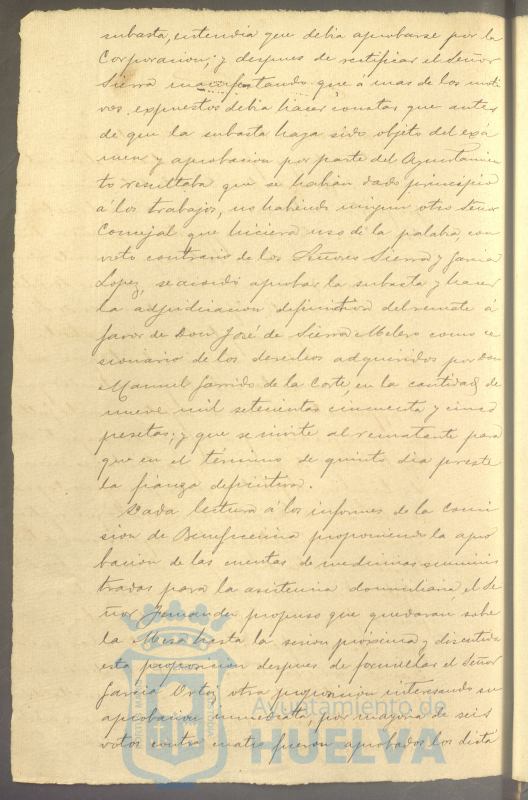 subasta, entendia que debia aprobarse por la
Corporacion; y despues de rectificar el Señor
Sierra manifestando que á mas de los moti
vos expuestos debia hacer constar que antes
de que la subasta haya sido objeto del exa
men y aprobacion por parte del Ayuntamien
to resultaba que se habian dado principio
á los trabajos, no habiendo ningun otro Señor
Concejal que hiciera uso de la palabra, con
voto contrario de los Señores Sierra y Garcia
Lopez, se acordó aprobar la subasta y hacer
la adjudicacion definitiva del remate á
favor de Don José de Sierra Melero como ce
sionario de los derechos adqueridos por Don
Manuel Garrido de la Corte, en la cantidad de
nueve mil setecientas cincuenta y cinco
pesetas; y que se invite al rematante para
que en el término de quinto dia preste
la fianza definitiva.
Dada lectura á los informes de la Comi
sion de Beneficencia proponiendo la apro
bacion de las cuentas de medicinas suminis
tradas para la asistencia domiciliaria, el Se
ñor Fernandez propuso que quedaran sobre
la Mesa hasta la sesion próxima, y discutida
esta proposicion despues de formular el Señor
Garcia Ortiz otra proposicion interesando su
aprobacion inmediata, por mayoria de seis
votos contra cuatro fueron aprobados los dictá
Ayuntamiento de
HUELVA